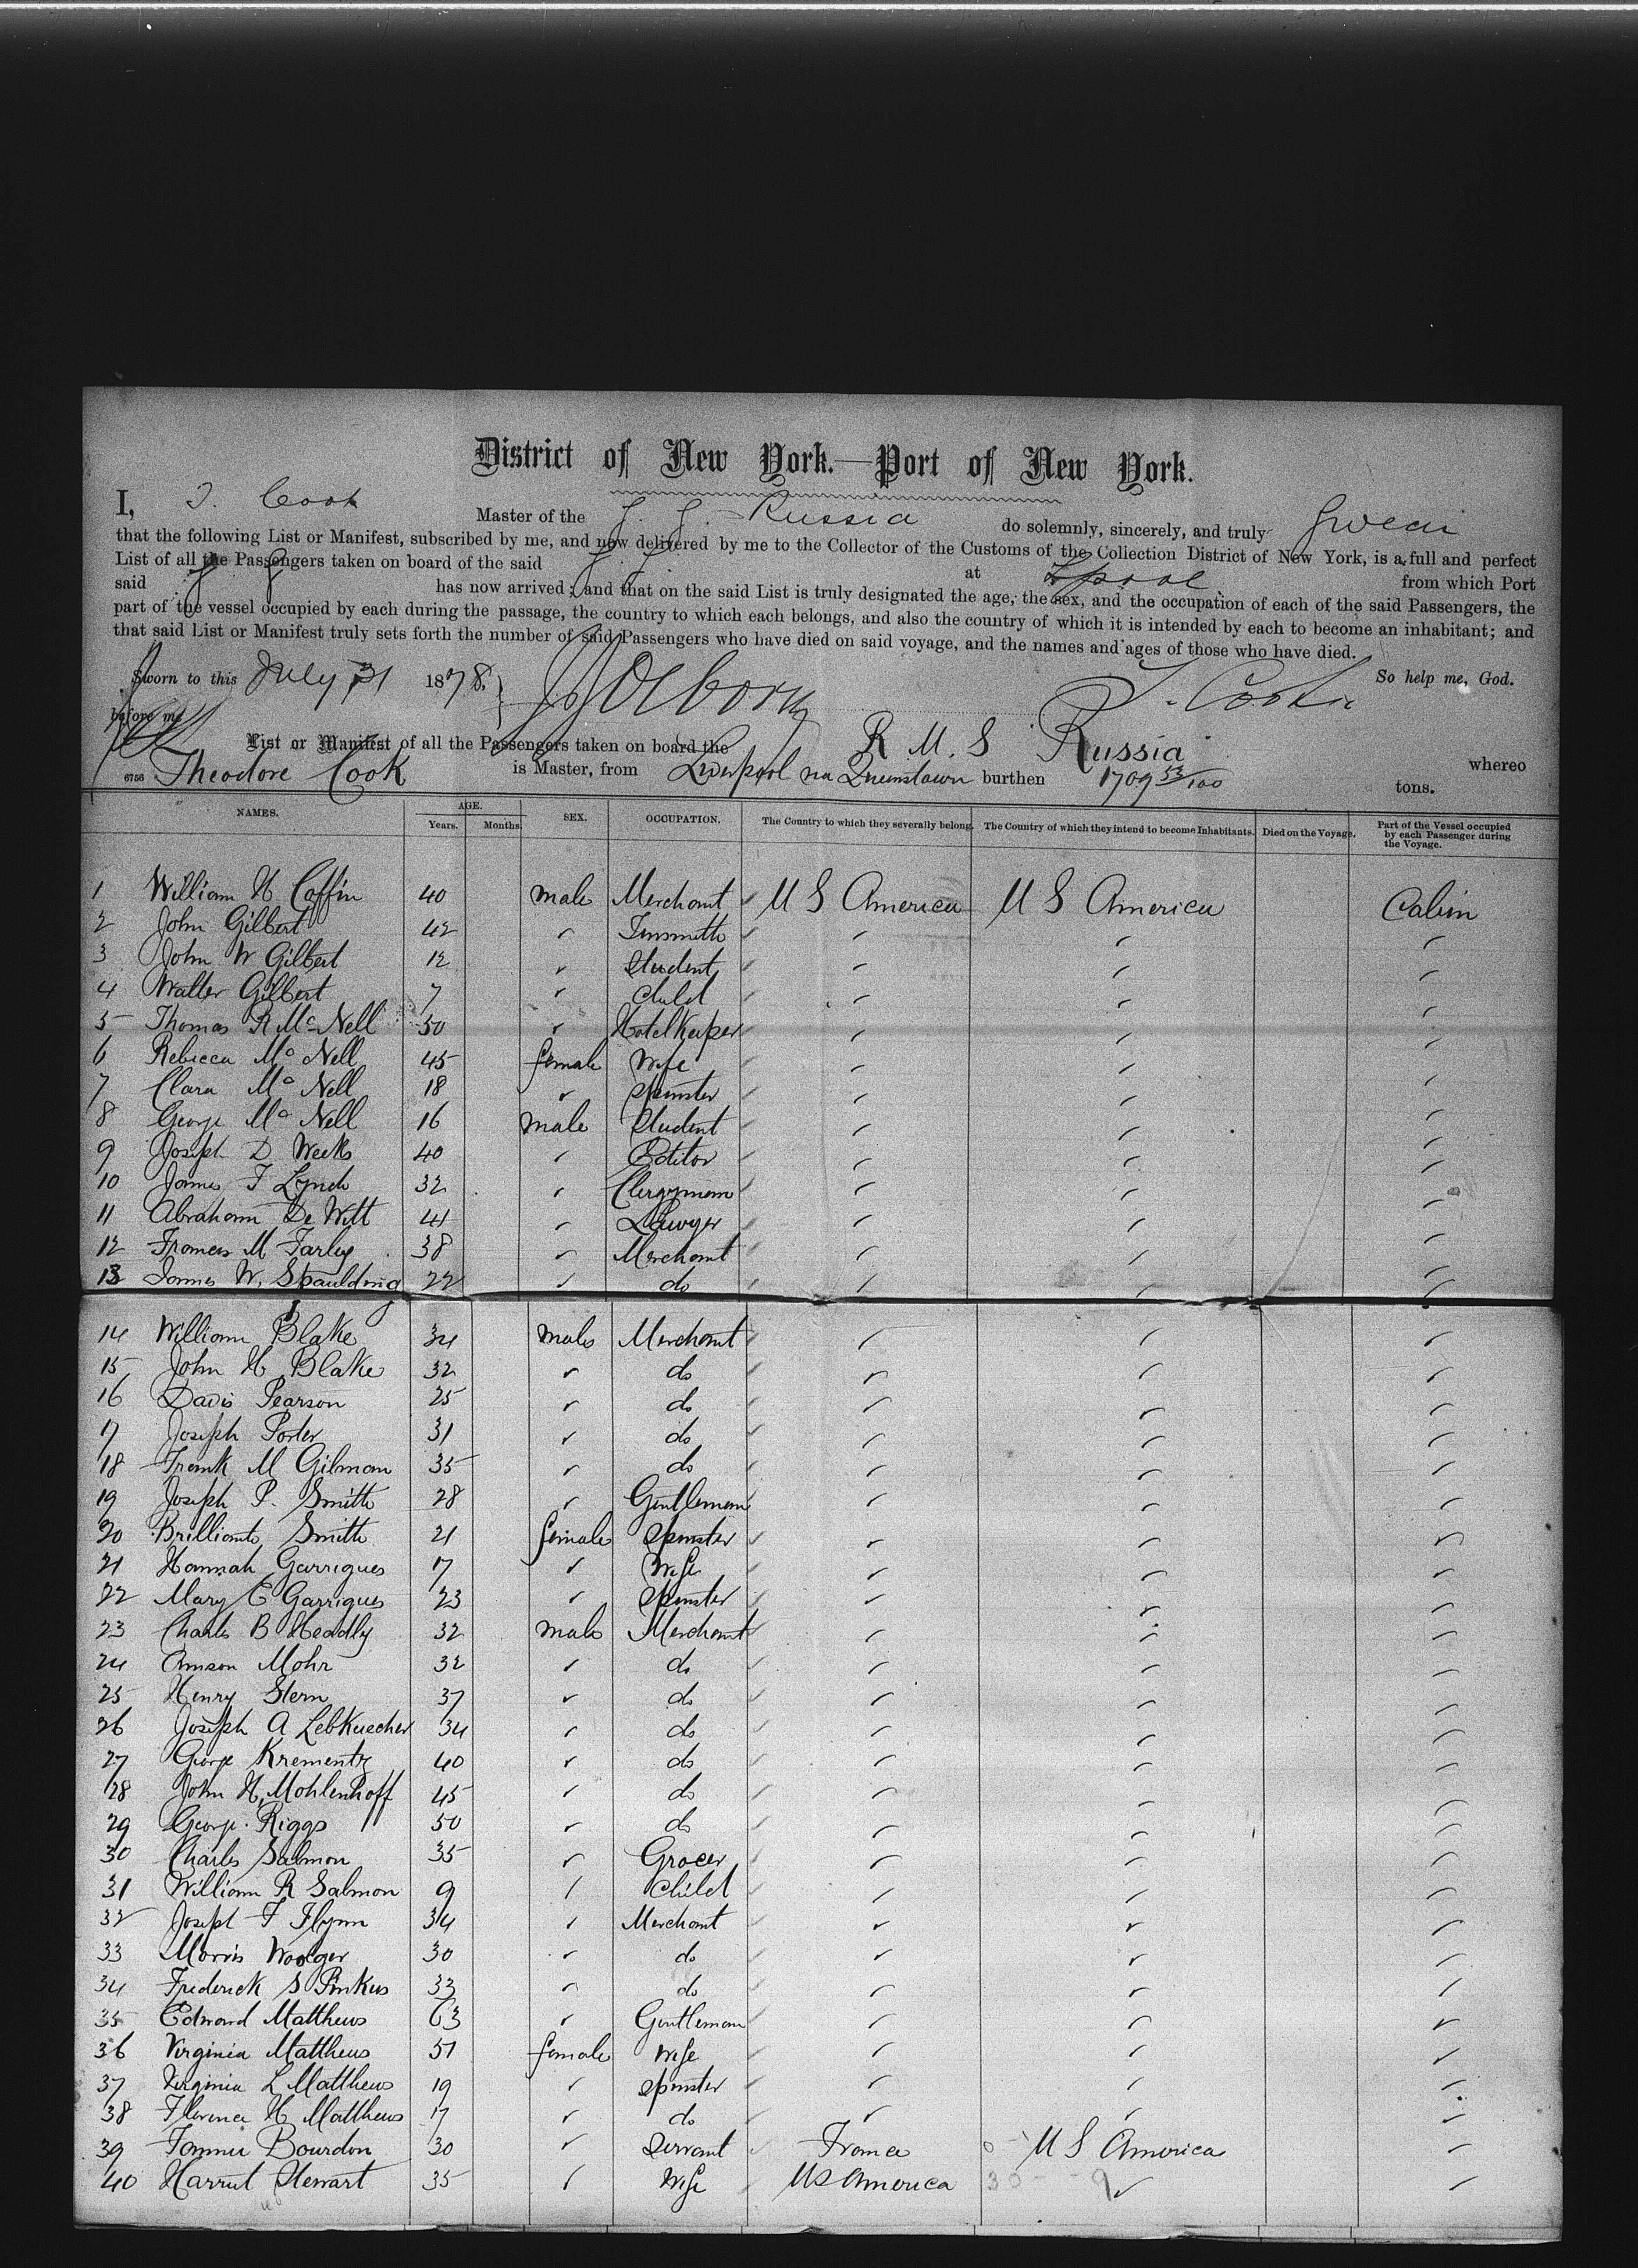 District of New York.—Port of New York.
I, T. Cook Master of the S. S. Russia do solemnly, sincerely, and truly Swear
that the following List or Manifest, subscribed by me, and now delivered by me to the Collector of the Customs of the Collection District of New York, is a full and perfect
List of all the Passengers taken on board of the said S. S. at Lpool from which Port
said S. S. has now arrived; and that on the said List is truly designated the age, the sex, and the occupation of each of the said Passengers, the
part of the vessel occupied by each during the passage, the country to which each belongs, and also the country of which it is intended by each to become an inhabitant; and
that said List or Manifest truly sets forth the number of said Passengers who have died on said voyage, and the names and ages of those who have died.
Sworn to this July 31 1878. T. Cook So help me, God.
before me
List or Manifest of all the Passengers taken on board the R. M. S Russia whereo
6756 Theodore Cook is Master, from Liverpool via Queenstown burthen 1709 53/100 tons.
NAMES. AGE. Years. Months. SEX. OCCUPATION. The Country to which they severally belong. The Country of which they intend to become Inhabitants. Died on the Voyage. Part of the Vessel occupied by each Passenger during the Voyage.
1 William H Coffin 40 male Merchant U S America U S America Cabin
2 John Gilbert 42 ✓ Tinsmith ✓ ✓ ✓
3 John W Gilbert 12 ✓ Student ✓ ✓ ✓
4 Walter Gilbert 7 ✓ Child ✓ ✓ ✓
5 Thomas R McNell 50 ✓ Hotel Keeper ✓ ✓ ✓
6 Rebecca Mc Nell 45 female Wife ✓ ✓ ✓
7 Clara Mc Nell 18 ✓ Spinster ✓ ✓ ✓
8 George Mc Nell 16 male Student ✓ ✓ ✓
9 Joseph D Weeks 40 ✓ Editor ✓ ✓ ✓
10 James F Lynch 32 ✓ Clergyman ✓ ✓ ✓
11 Abraham De Witt 41 ✓ Lawyer ✓ ✓ ✓
12 Frances M Farley 38 ✓ Merchant ✓ ✓ ✓
13 James W. Spaulding 22 ✓ do ✓ ✓ ✓
14 William Blake 34 male Merchant ✓ ✓ ✓
15 John H Blake 32 ✓ do ✓ ✓ ✓
16 Davis Pearson 25 ✓ do ✓ ✓ ✓
17 Joseph Porter 31 ✓ do ✓ ✓ ✓
18 Frank M Gilman 35 ✓ do ✓ ✓ ✓
19 Joseph P. Smith 28 ✓ Gentleman ✓ ✓ ✓
20 Brilliante Smith 21 female Spinster ✓ ✓ ✓
21 Hannah Garrigues 17 ✓ Wife ✓ ✓ ✓
22 Mary C Garrigues 23 ✓ Spinster ✓ ✓ ✓
23 Charles B Headly 32 male Merchant ✓ ✓ ✓
24 Amson Mohr 32 ✓ do ✓ ✓ ✓
25 Henry Stern 37 ✓ do ✓ ✓ ✓
26 Joseph A Lebkuecher 34 ✓ do ✓ ✓ ✓
27 George Krementz 40 ✓ do ✓ ✓ ✓
28 John H. Mohlenhoff 45 ✓ do ✓ ✓ ✓
29 George Riggs 50 ✓ do ✓ ✓ ✓
30 Charles Salmon 35 ✓ Grocer ✓ ✓ ✓
31 William R Salmon 9 ✓ Child ✓ ✓ ✓
32 Joseph F Flynn 34 ✓ Merchant ✓ ✓ ✓
33 Morris Woolger 30 ✓ do ✓ ✓ ✓
34 Frederick S Pinkus 33 ✓ do ✓ ✓ ✓
35 Edward Matthews 63 ✓ Gentleman ✓ ✓ ✓
36 Virginia Matthews 51 female Wife ✓ ✓ ✓
37 Virginia L Matthews 19 ✓ Spinster ✓ ✓ ✓
38 Florence H Matthews 17 ✓ do ✓ ✓ ✓
39 Fannie Bourdon 30 ✓ Servant France U S America ✓
40 Harriet Stewart 35 ✓ Wife US America ✓ ✓